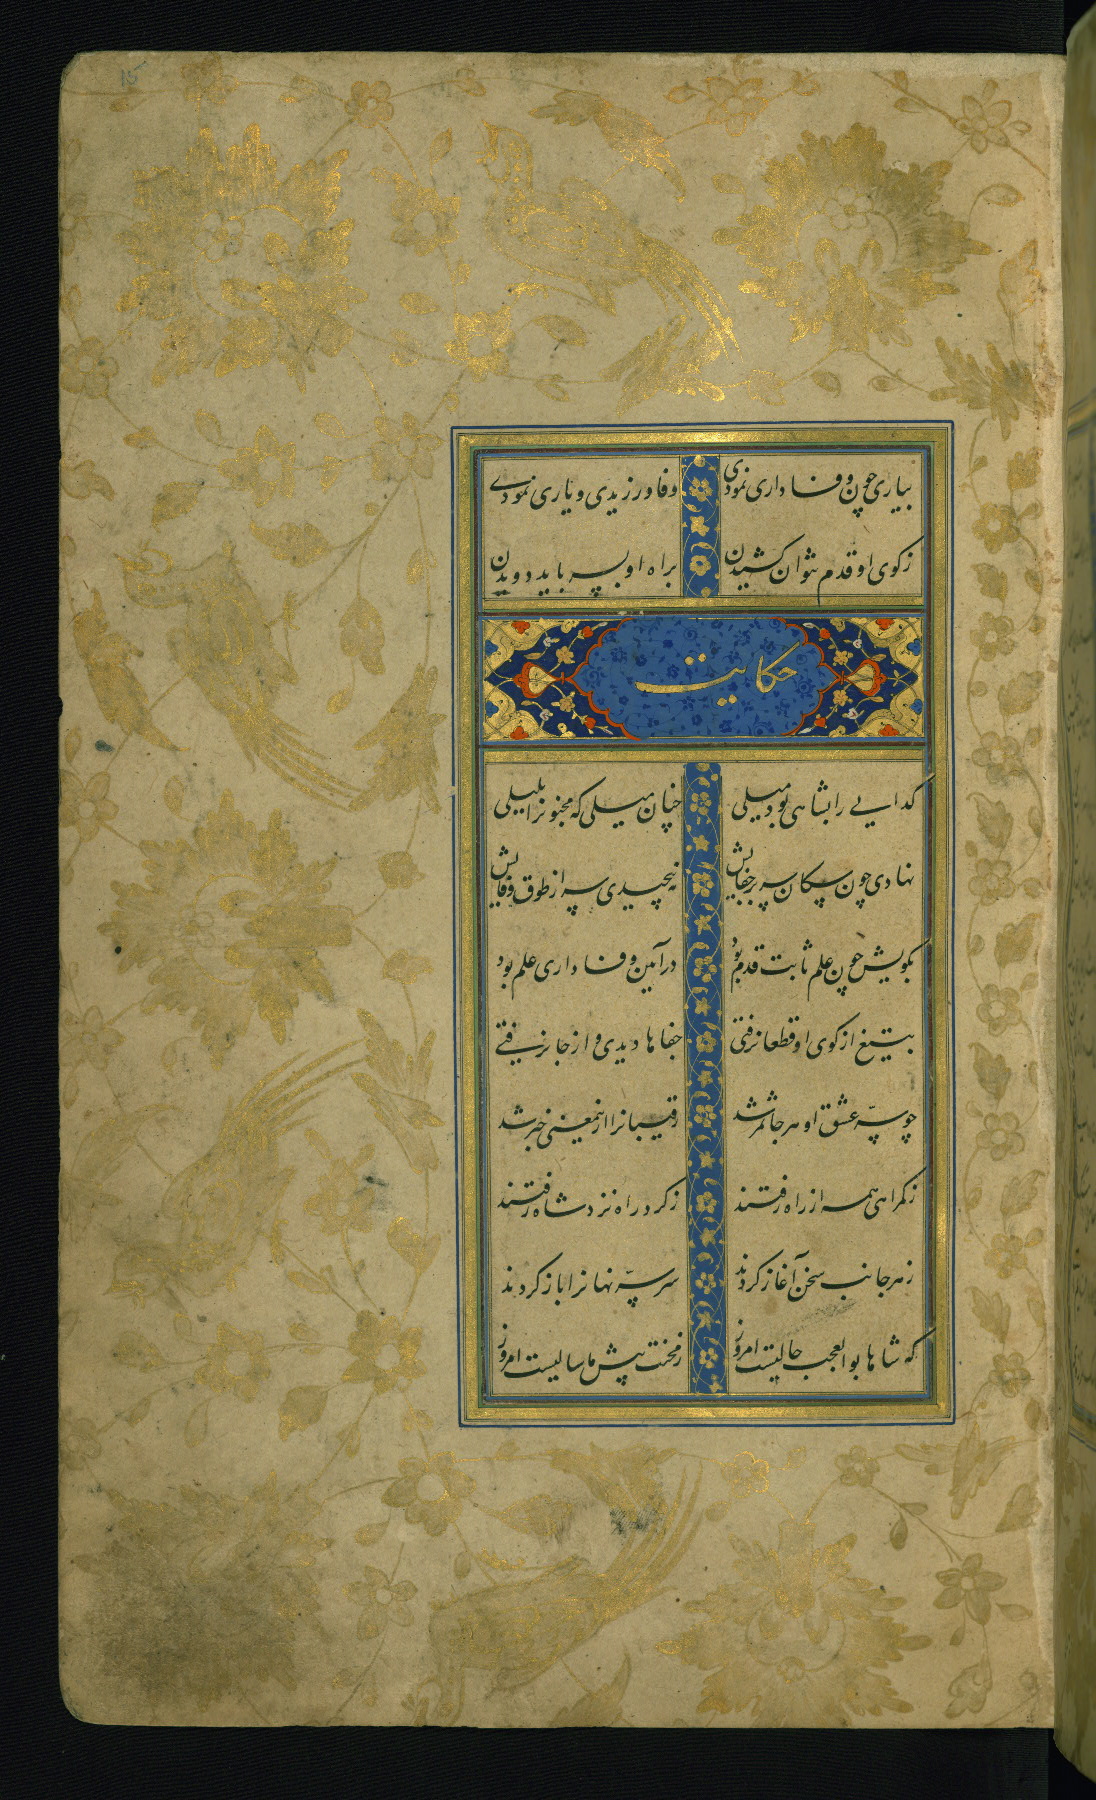 ۱۵
بیاری چون وفاداری نمودی وفا ورزیدی و یاری نمودی
زکوی او قدم نتوان کشیدن براه او بسر باید دویدن
حکایت
کدایی را بشاهی بود میلی چنان میلی که مجنونرا بلیلی
نهادی چون سکان سر بر جفایش نه پیچیدی سر از طوق وفایش
بکویش چون علم ثابت قدم بود در آیین وفاداری علم بود
بتیغ از کوی او قطعا نرفتی جفاها دیدی و از جا نرفتی
چو سرّ عشق او هر جا ثمر شد رقیبانرا ازینمعنی خبر شد
زکمراهی همه از راه رفتند زکرد راه نزد شاه رفتند
زهر جانب سخن آغاز کردند سر سرّ نهانرا باز کردند
که شاها بوالعجب حالیست امروز زمحنت پیش ما سالیست امروز